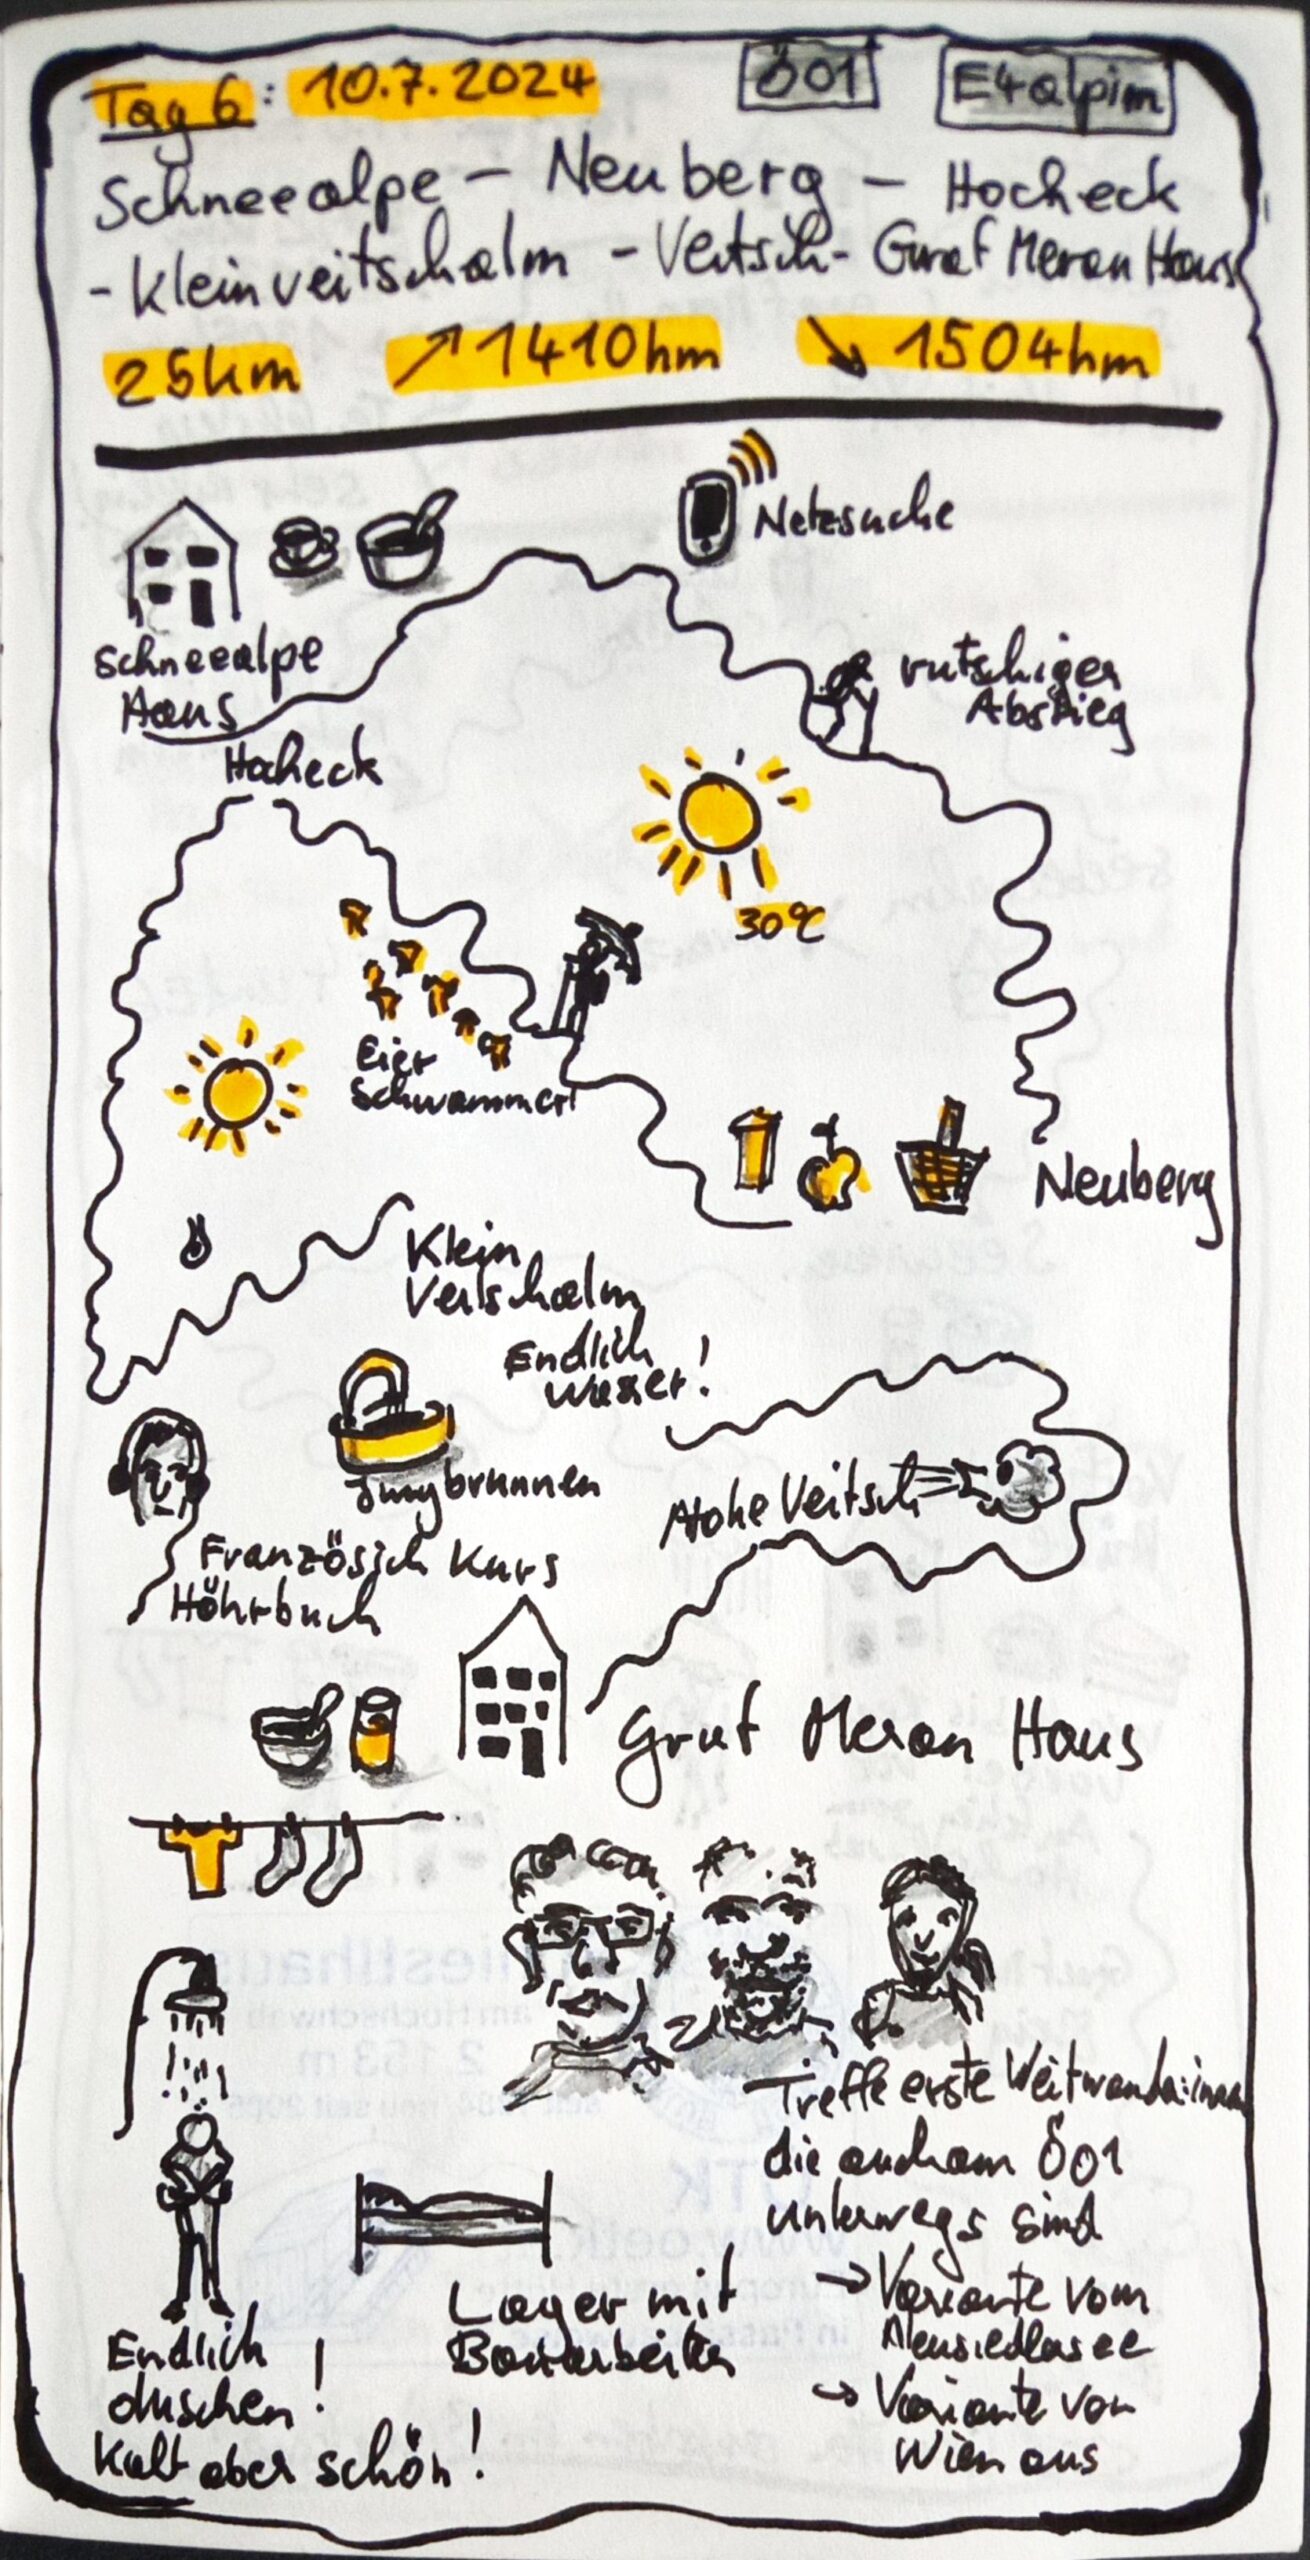 Tag 6: 10.7.2024 Ö01 E4alpin
Schneealpe – Neuberg – Hocheck
- Kleinveitschalm - Veitsch - Graf Meran Haus
25km ↗1410hm ↘1504hm
Netzsuche
Schneealpe
Haus
rutschiger
Abstieg
Hocheck
30°C
Eier
Schwammerl
Neuberg
Klein
Veitschalm
Endlich
Wasser!
Jungbrunnen
Hohe Veitsch
Französich Kurs
Höhrbuch
Graf Meran Haus
Treffe erste Weitwander:innen
die auch am Ö01
unterwegs sind
→ Variante vom
Neusiedlersee
→ Variante von
Wien aus
Lager mit
Bauarbeiter
Endlich
duschen!
Kalt aber schön!